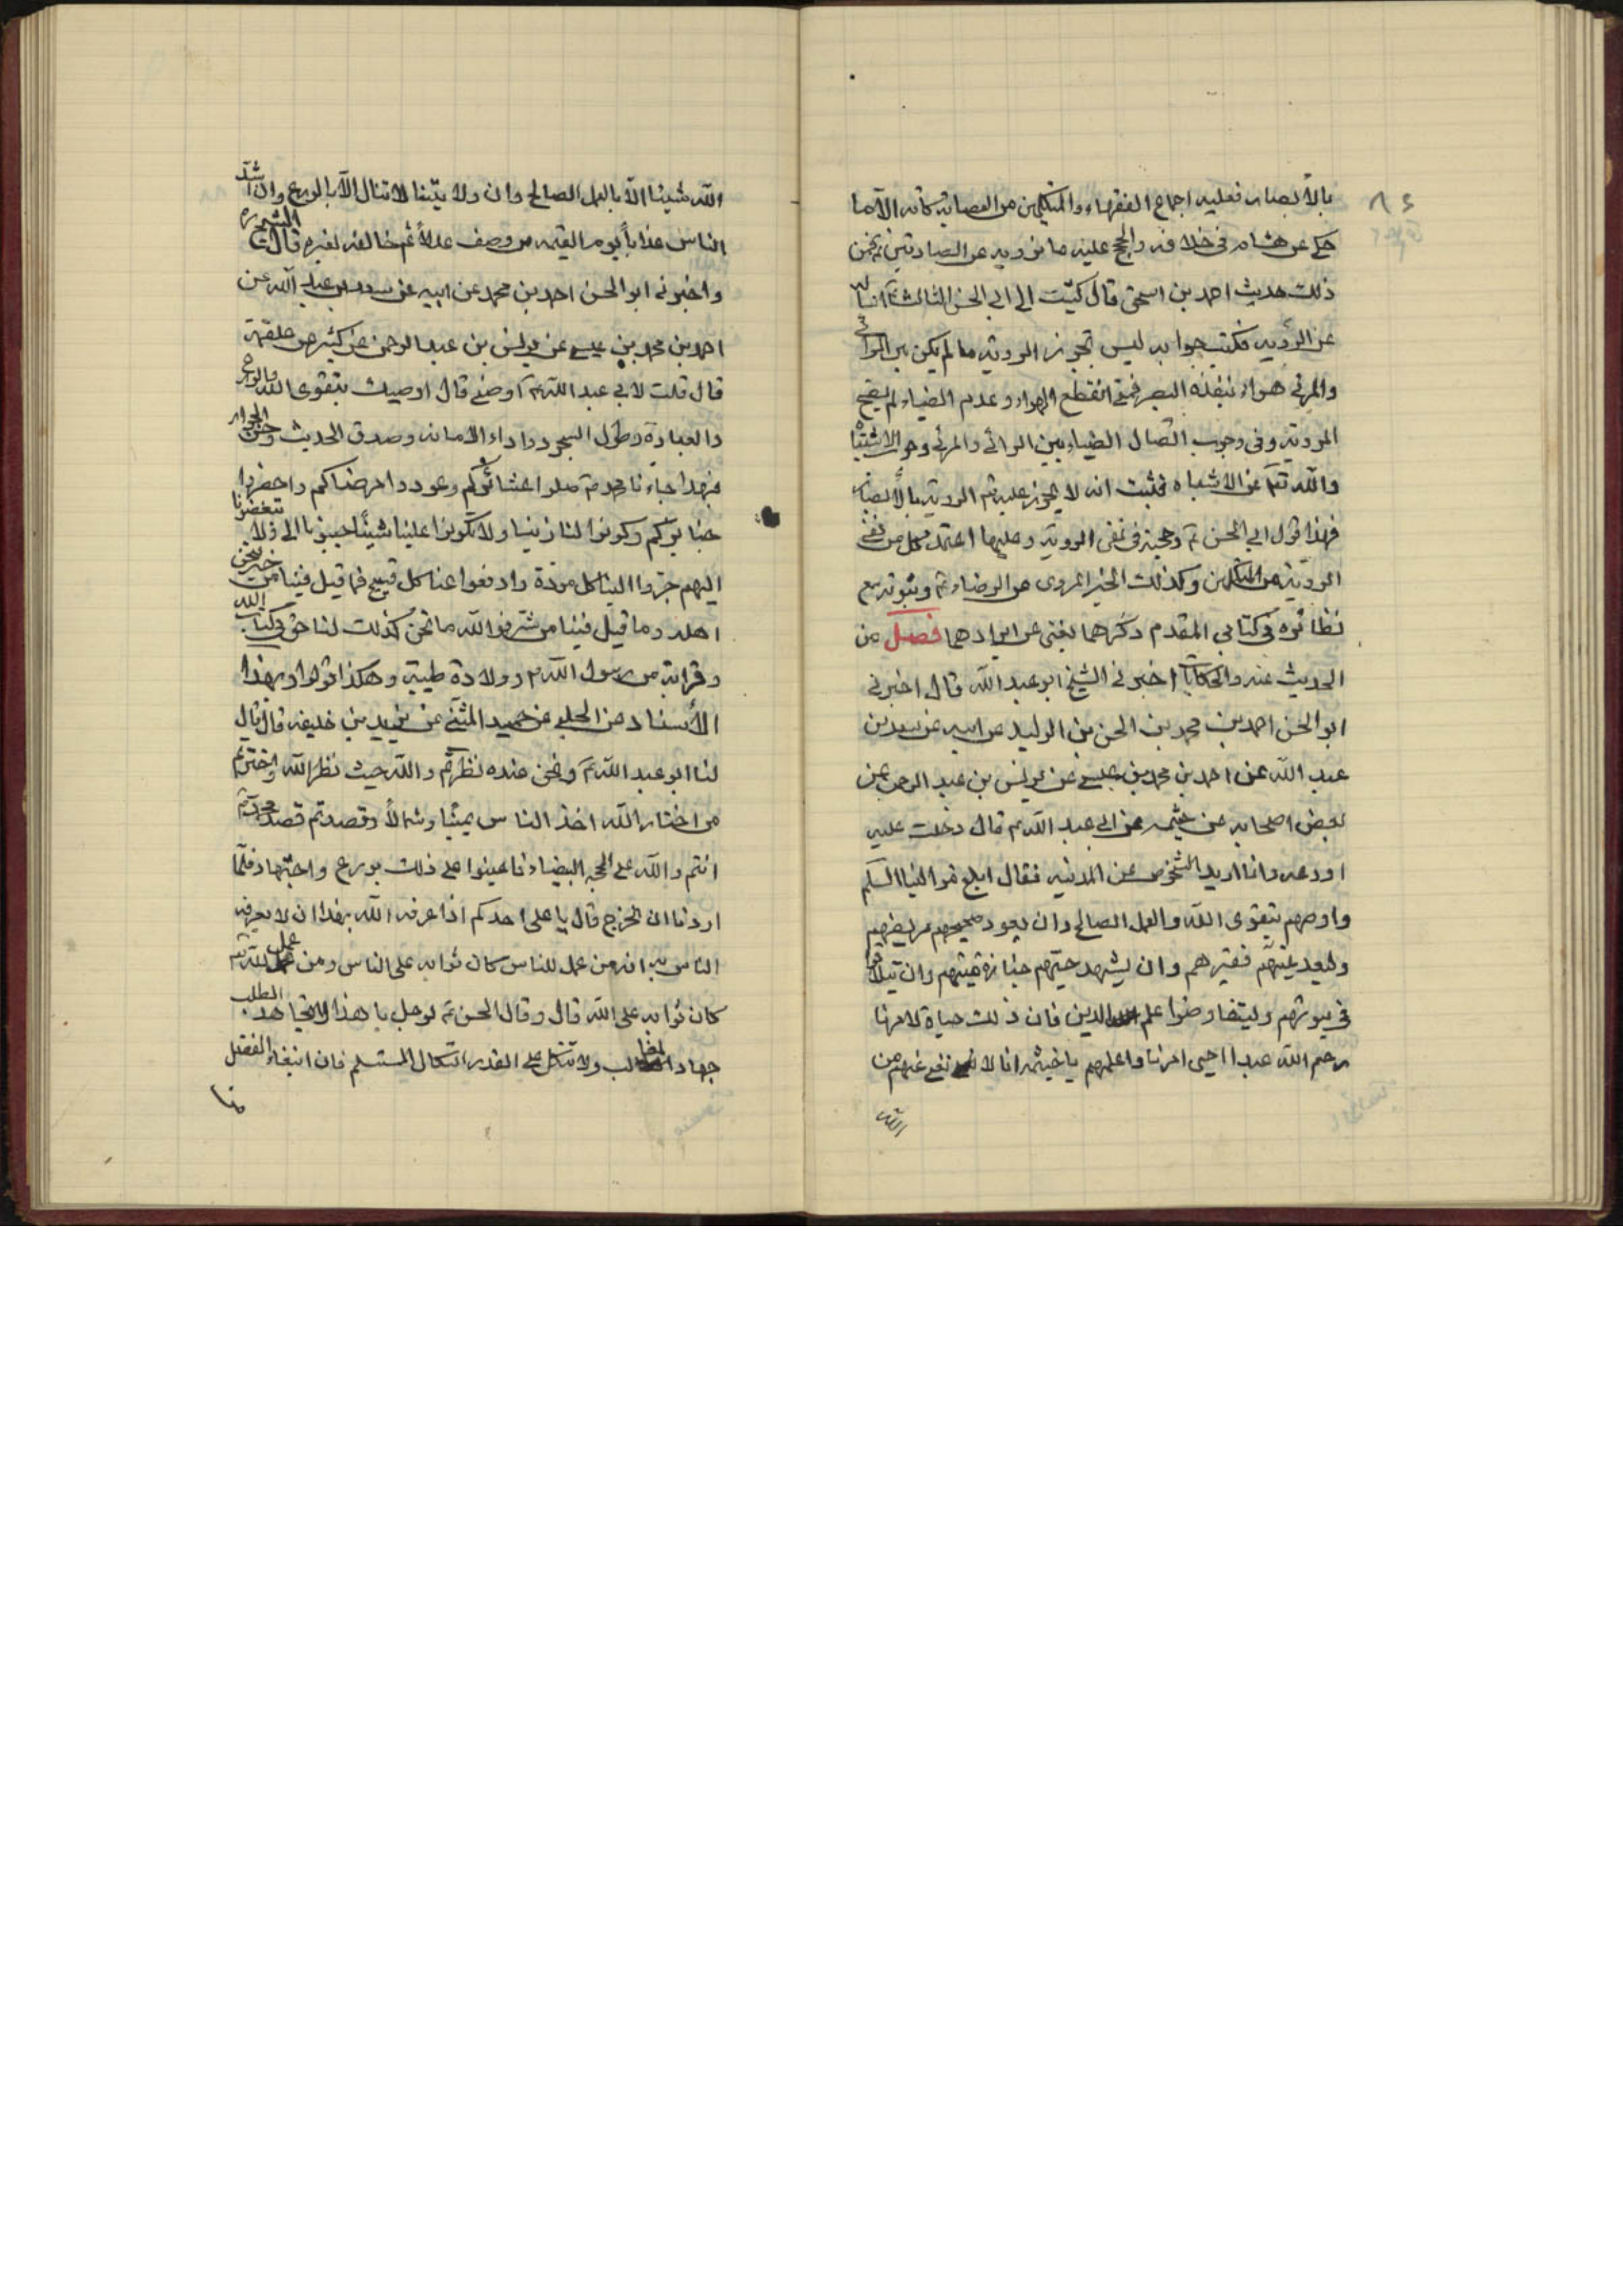 بالأبصار فعليه اجماع الفقهاء والمتكلمين من العصابة كافه الا ما
حكى عن هشام في خلافه والحجج عليه ما روي عن الصادقين ع فمن
ذلك حديث احمد بن اسحق قال كتبت الى ابي الحسن الثالث ع اسأله
عن الرؤيه فكتب جوابه ليس تجوز الرؤيه ما لم يكن بين الرائي
والمرئي هواء ينفذه البصر فمتى انقطع الهواء وعدم الضياء لم يصح
الرؤيه وفي وجوب اتصال الضياء بين الرائي والمرئي وجوب الاشتباه
والله تعالى عن الاشباه فثبت انه لا يجوز عليه ع الرؤية بالأبصار
فهذا قول ابي الحسن ع وحجته في نفي الرؤية وعليها اعتمد كل من نفى
الرؤية من المتكلمين وكذلك الخبر المروى عن الرضاء ع وثبوته مع
نظائره في كتابي المقدم ذكرهما يغني عن ايرادهما فصل من
الحديث عنه والحكايات اخبرني الشيخ ابو عبد الله قال اخبرني
ابو الحسن احمد بن محمد بن الحسن بن الوليد عن ابيه عن سعد بن
عبد الله عن احمد بن محمد بن عيسى عن يونس بن عبد الرحمن عن
بعض اصحابه عن خيثمه عن ابي عبد الله ع قال دخلت عليه
اودعه وانا اريد الشخوص عن المدينه فقال ابلغ موالينا السلم
واوصهم بتقوى الله والعمل الصالح وان يعود صحيحهم مريضهم
وليعد غنيهم فقيرهم وان يشهد حيهم جنازة ميتهم وان يتلاقوا
في بيوتهم وليتفاوضوا علم الدين فان ذلك حياة لامرنا
رحم الله عبدا احيى امرنا واعلمهم يا خيثمه انا لا نغني عنهم من
الله
الله شيئا الا بالعمل الصالح وان ولايتنا لا تنال الا بالورع وان اشد
الناس عذاباً يوم القيمه من وصف عدلاً ثم خالفه لغيره قال الشيخ ره
واخبرني ابو الحسن احمد بن محمد عن ابيه عن سعد بن عبد الله عن
احمد بن محمد بن عيسى عن يونس بن عبد الرحمن عن كثير بن علقمة
قال قلت لابي عبد الله ع اوصني قال اوصيك بتقوى الله والورع
والعبادة وطول السجود واداء الامانه وصدق الحديث وحسن الجوار
فبهذا جاءنا محمد ص صلوا عشائركم وعودوا مرضاكم واحضروا
جنائزكم وكونوا لنا زينا ولا تكونوا علينا شيناً احبونا الى ولا تبغضونا
اليهم جروا الينا كل مودة وادفعوا عنا كل قبيح فما قيل فينا من خير فنحن
اهله وما قيل فينا من شر فو الله ما نحن كذلك لنا حق في كتاب الله
وقرابة من رسول الله ص وولادة طيبة وهكذا قولوا وبهذا
الأسناد عن الحلبي عن حميد المثنى عن يزيد بن خليفه قال قال
لنا ابو عبد الله ع ونحن عنده نظرتم والله حيث نظر الله واخترتم
من اختار الله اخذ الناس يمينا وشمالاً وقصدتم قصد محمد ص
انتم والله على المحجه البيضاء فاعينوا على ذلك بورع واجتهاد فلما
اردنا ان نخرج قال ما على احدكم اذا عرفه الله بهذا ان لا يعرفه
الناس به انه من عمل للناس كان ثوابه على الناس ومن عمل لله
كان ثوابه على الله قال وقال الحسن ع لرجل يا هذا لا تجاهد الطلب
جهاد المغالب ولا تتكل على القدر اتكال المستسلم فان ابتغاء الفضل